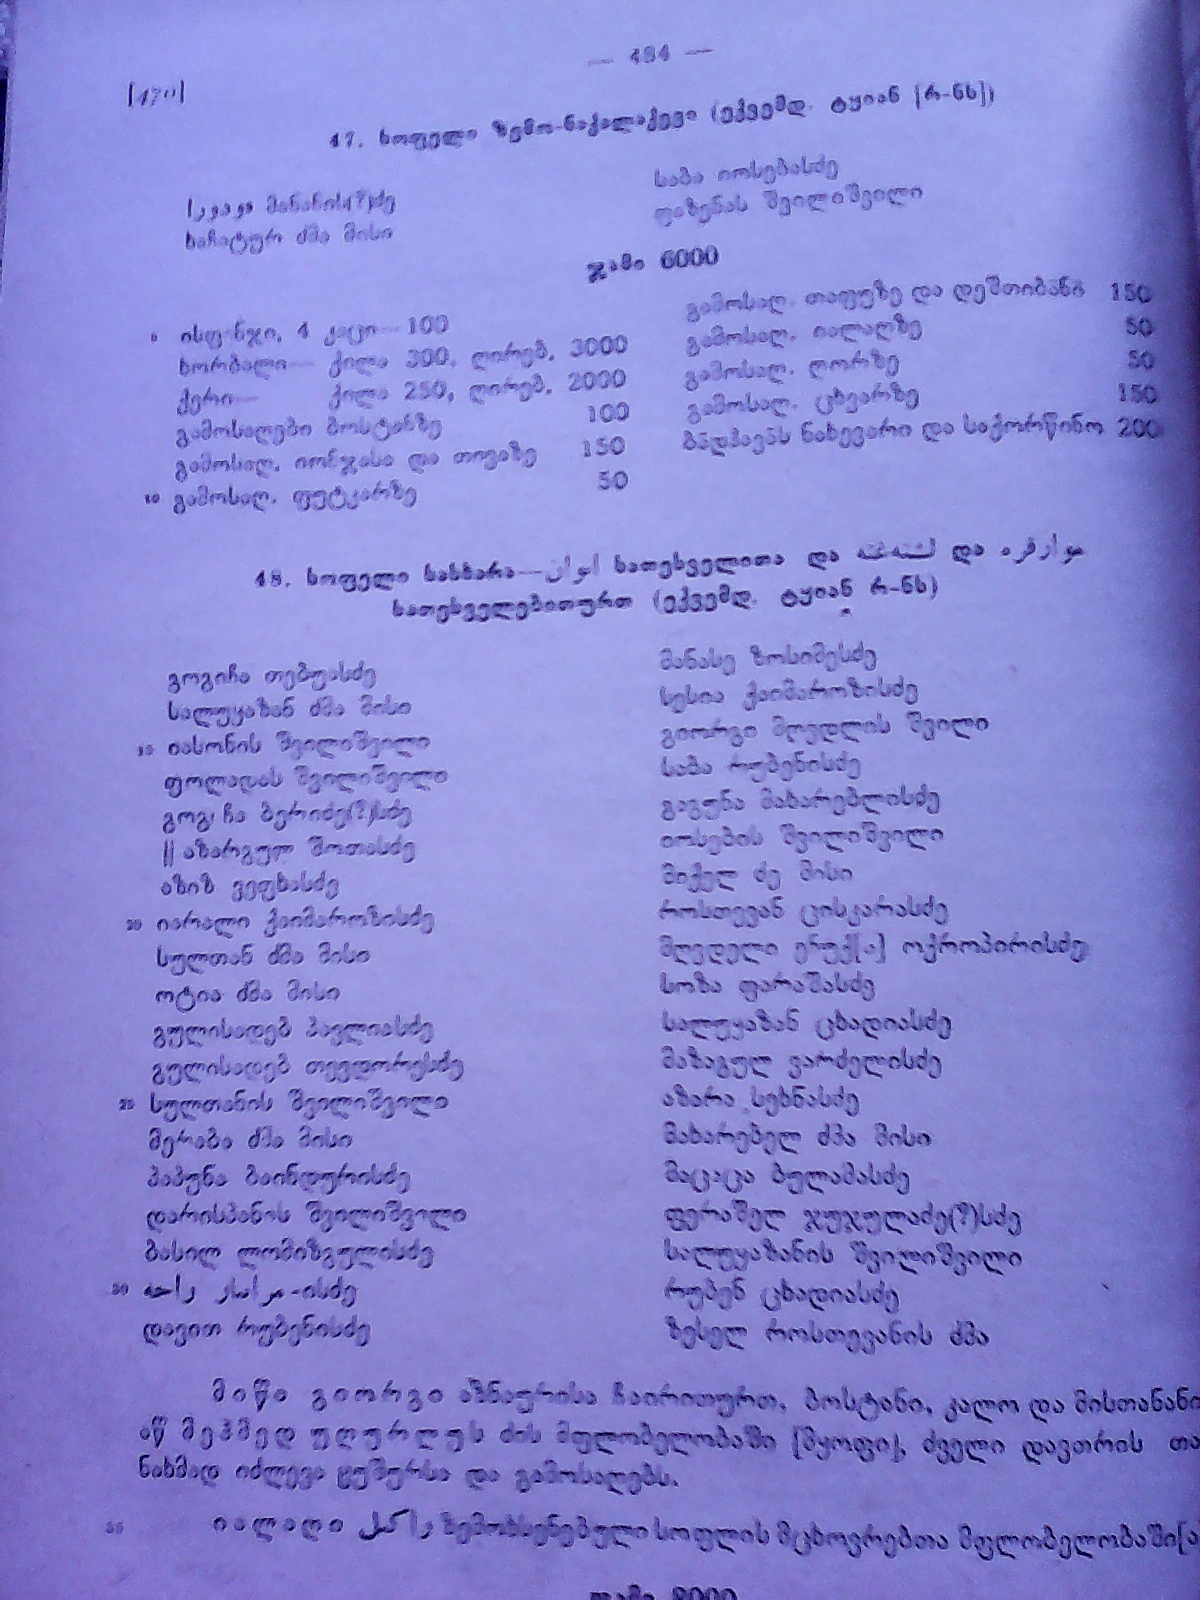 — 484 —
[470]
47. სოფელი ზემო-ნაქალაქევი (ექვემდ. ტყიან [რ-ნს])
მანანის(?)ძე
ხაჩატურ ძმა მისი
საბა იოსებასძე
ფაზენას შვილიშვილი
ჯამი 6000
ისფენჯი, 4 კაცი—100
ხორბალი— ქილა 300, ღირებ. 3000
ქერი— ქილა 250, ღირებ. 2000
გამოსაღები ბოსტანზე 100
გამოსაღ. იონჯასა და თივაზე 150
10 გამოსაღ. ფუტკარზე 50
გამოსაღ. თაფუზე და დეშთიბანგ 150
გამოსაღ. იალაღზე 50
გამოსაღ. ღორზე 50
გამოსაღ. ცხვარზე 150
ბადჰავას ნახევარი და საქორწინო 200
48. სოფელი სახხარა— სათესველითა და და
სათესველებითურთ (ექვემდ. ტყიან რ-ნს)
გოგიჩა თებუასძე
სალუყაზან ძმა მისი
იასონის შვილიშვილი
ფოლადას შვილიშვილი
გოგიჩა ბერიძე(?)სძე
|| აზარგულ შოთასძე
აზიზ ვეფხასძე
20 იარალი ქაიმაროზისძე
სულთან ძმა მისი
ოტია ძმა მისი
გულისადებ პავლიასძე
გულისადებ თევდორესძე
25 სულთანის შვილიშვილი
მერაბა ძმა მისი
პაპუნა ბაინდურისძე
დარისპანის შვილიშვილი
ბასილ ლომიზგულისძე
30 -ისძე
დავით რუბენისძე
მანასე ზოსიმესძე
სესია ქაიმაროზისძე
გიორგი მღვდლის შვილი
საბა რუბენისძე
გაგუნა მახარებლისძე
იოსების შვილიშვილი
მიქელ ძე მისი
როსთევან ცისკარასძე
მღვდელი ერუქ[ა] ოქროპირისძე
სოზა ფარაშასძე
სალუყაზან ცხადიასძე
მაზაგულ ვარძელისძე
აზარა სეხნასძე
მახარებელ ძმა მისი
მაცაცა ბულამასძე
ფერაშელ ჯუჯულაძე(?)სძე
სალუყაზანის შვილიშვილი
რუბენ ცხადიასძე
ზესელ როსთევანის ძმა
მიწი გიორგი აზნაურისა ჩაირითურთ, ბოსტანი, კალო და მისთანანი
აწ მეჰმედ უღურლუს ძის მფლობელობაში [მყოფი], ძველი დავთრის თა
ნახმად იძლევა ღუშურსა და გამოსაღებს.
35 იალაღი ზემოხსენებული სოფლის მცხოვრებთა მფლობელობაში[ა
ჯამი 8000